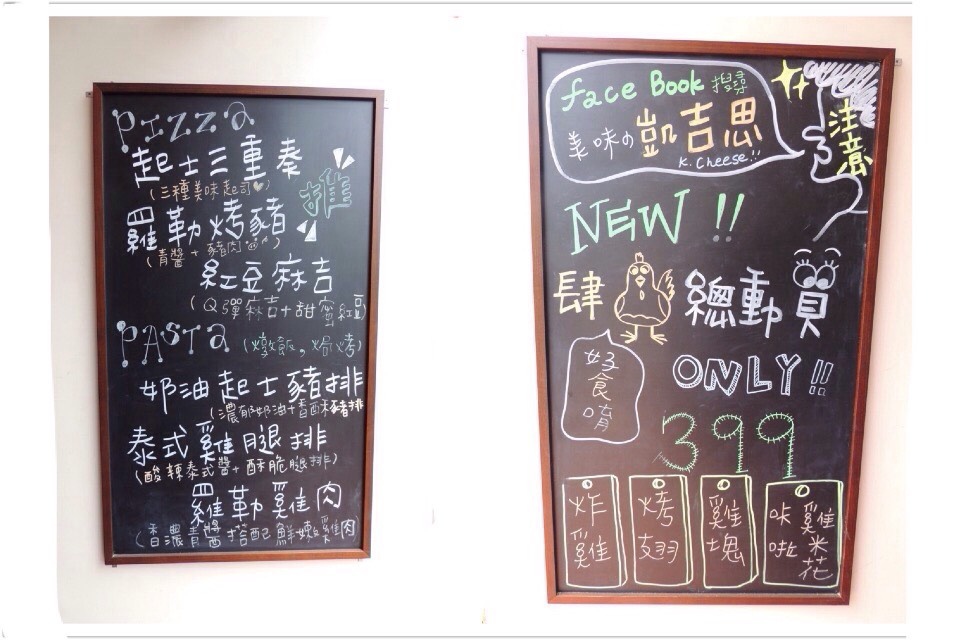 PIZZA
起士三重奏
(三種美味起司♡)
推
羅勒烤豬
(青醬+豬肉)
紅豆麻吉
(Q彈麻吉+甜蜜紅豆)
PASTA (燉飯,焗烤)
奶油起士豬排
(濃郁奶油+香酥豬排)
泰式雞腿排
(酸辣泰式醬+酥脆腿排)
羅勒雞肉
(香濃青醬搭配鮮嫩雞肉)
face Book 搜尋
美味の凱吉思
K. Cheese!!
注意
NEW!!
肆 總動員
好食唷
ONLY!!
399
炸雞
烤翅
雞塊
咔啦雞米花